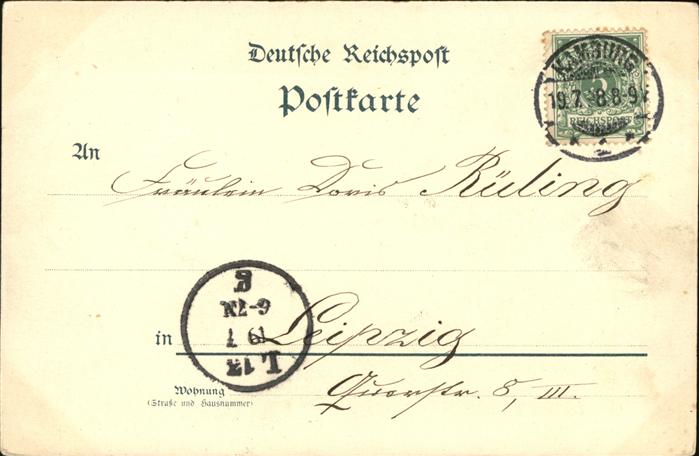 Deutsche Reichspost
Postkarte
HAMBURG
19.7.
8.8-9V
1
5
REICHSPOST
An
Fräulein Doris Rüling
in Leipzig
L 13
19 7
6-7N
Wohnung
(Straße und Hausnummer)
Querstr. 8, III.